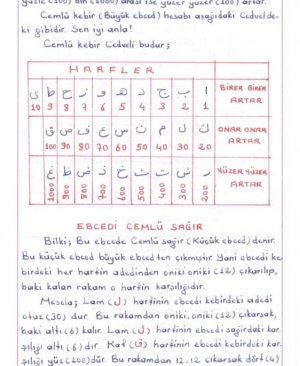 yüzle (100) bin (1000) arası ise yüzer yüzer (100) artar.
Cemlü kebir (Büyük ebced) hesabı aşağıdaki Cedvelde-
ki gibidir. Sen iyi anla!
Cemlü kebir Cedveli budur;
HARFLER
ى ط ح ز و ه د ج ب ا BİRER BİRER ARTAR
10 9 8 7 6 5 4 3 2 1
ق ص ف ع س ن م ل ك ONAR ONAR ARTAR
100 90 80 70 60 50 40 30 20
غ ظ ض ذ خ ث ت ش ر YÜZER YÜZER ARTAR
1000 900 800 700 600 500 400 300 200
EBCEDİ CEMLÜ SAĞIR
Bilki; Bu ebcede Cemlü sağir (Küçük ebced) denir.
Bu küçük ebced büyük ebced ten çıkmıştır. Yani ebcedi ke-
birdeki her harfin adedinden oniki oniki (12) çıkarılıp,
baki kalan rakam o harfin karşılığıdır.
Mesela; Lam (ل) harfinin ebcedi kebirdeki adedi
otuz (30) dur. Bu rakamdan oniki, oniki (12) çıkarsak,
baki altı (6) kalır. Lam (ل) harfinin ebcedi sağirdeki kar-
şılığı altı (6) dır. Kaf (ق) harfinin ebcedi kebirdeki kar-
şılığı yüz (100) dür. Bu rakamdan 12-12 çıkarsak dört (4)